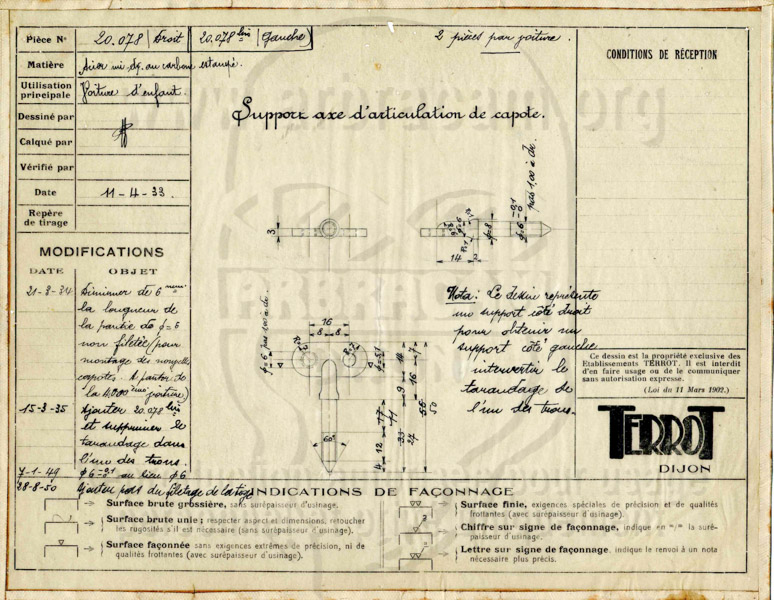 Pièce Nº 20.078 Droit 20.078 bis (Gauche)
2 pièces par voiture.
Matière Acier mi-dx. au carbone estampé.
Utilisation principale Voiture d'enfant.
Dessiné par
Calqué par
Vérifié par
Date 11-4-33.
Repère de tirage
CONDITIONS DE RÉCEPTION
Support axe d'articulation de capote.
MODIFICATIONS
DATE OBJET
21-3-34 Diminuer de 6
la longueur de
la partie de φ=6
non filetée (pour
montage des nouvelles
capotes. A partir de
la 4.000ème voiture)
15-3-35 Ajouter 20.078 bis
et supprimer le
taraudage dans
l'un des trous.
7-1-49 φ6 -0,1 au lieu φ6
28-8-50 Ajouter pas du filetage de la tige
3
14
2
φ=8
φ=6 -0,1 -0
pas 1,00 à dr.
φ=6 pas 100 à dr.
16
8 8
φ=5,1
60°
4 12 17
11
33 9 14
27 16 7
56
50
Nota: Ce dessin représente
un support côté droit
pour obtenir un
support côté gauche
intervertir le
taraudage de
l'un des trous.
Ce dessin est la propriété exclusive des
Etablissements TERROT. Il est interdit
d'en faire usage ou de le communiquer
sans autorisation expresse.
(Loi du 11 Mars 1902.)
TERROT
DIJON
INDICATIONS DE FAÇONNAGE
Surface brute grossière, sans surépaisseur d'usinage.
Surface brute unie; respecter aspect et dimensions, retoucher
les rugosités s'il est nécessaire (sans surépaisseur d'usinage).
Surface façonnée sans exigences extrêmes de précision, ni de
qualités frottantes (avec surépaisseur d'usinage).
Surface finie, exigences spéciales de précision et de qualités
frottantes (avec surépaisseur d'usinage).
Chiffre sur signe de façonnage, indique en m/m la surépaisseur
d'usinage.
Lettre sur signe de façonnage, indique le renvoi à un nota
nécessaire plus précis.